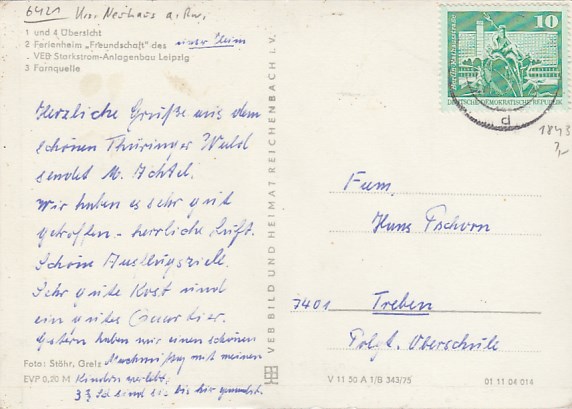 6421
Neuhaus a. Rw.
1 und 4 Übersicht
2 Ferienheim „Freundschaft" des
unser Heim
VEB Starkstrom-Anlagenbau Leipzig
3 Farnquelle
Herzliche Grüße aus dem
schönen Thüringer Wald
sendet M. Achtel.
Wir haben es sehr gut
getroffen - herrliche Luft.
Schöne Ausflugsziele.
Sehr gute Kost und
ein gutes Quartier.
Gestern haben wir einen schönen
Nachmittag mit meinen
Kindern verlebt,
z. Zt. sind sie bis hier gewandert.
Foto: Stöhr, Greiz
EVP 0,20 M
VEB BILD UND HEIMAT REICHENBACH I. V.
10
DEUTSCHE DEMOKRATISCHE REPUBLIK
d
1843
Fam.
Hans Pschorn
7401 Treben
Polyt. Oberschule
V 11 50 A 1/B 343/75
01 11 04 014